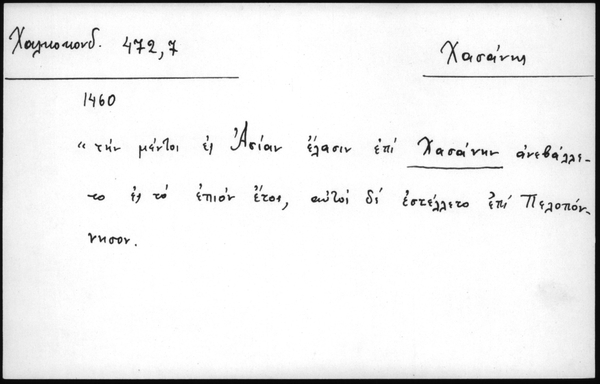 Χαλκοκονδ. 472,7
Χασάνης
1460
“ τὴν μέντοι ἐς Ἀσίαν ἔλασιν ἐπὶ Χασάνην ἀνεβάλλε-
το ἐς τὸ ἐπιὸν ἔτος, αὐτὸς δὲ ἐστέλλετο ἐπὶ Πελοπόν-
νησον.